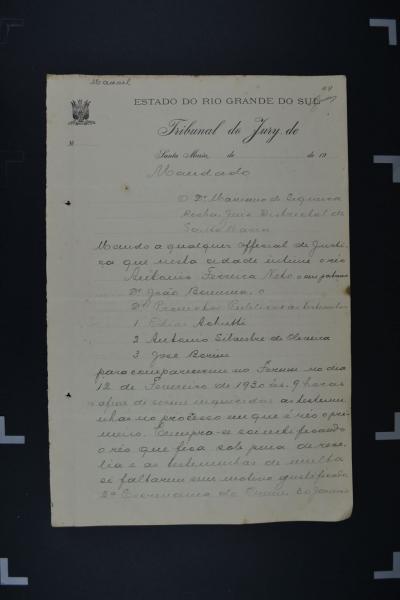 ESTADO DO RIO GRANDE DO SUL
Tribunal do Jury de
Santa Maria, de de 19
Mandado
O Dr. Marianno de Siqueira
Rocha, Juiz Districtal de
Santa Maria
Mando a qualquer official de Justi-
ça que nesta cidade intime o réo
Antonio Ferreira Neto o seu
Dr. João Bonuma, o
Dr. Promotor Publico e as testemunhas
1 Edias Achutti
2 Antonio Silvestre de Oliveira
3 José Borin
para comparecerem no Forum no dia
12 de Fevereiro de 1930 ás 9 horas
afim de serem inqueridas as testemu-
nhas no processo em que é réo o pri-
meiro. Cumpra-se scientificando
o réo que fica sob pena de reve-
lia e as testemunhas de multa
si faltarem sem motivo justificado
2º Escrivania do Crime 30 Janeiro